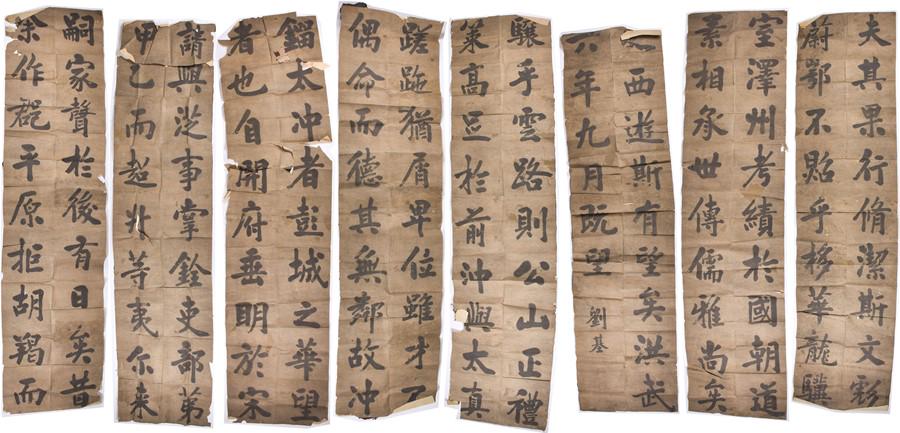 夫其果行脩潔斯文彩
蔚鄂不照乎移華龍驥
室澤州考績於國朝道
素相承世傳儒雅尚矣
西遊斯有望矣洪武
年九月既望
劉基
驤乎雲路則公山正禮
策高足於前沖與太真
蹉跎猶屑卑位雖才不
偶命而德其無鄰故沖
鎦太冲者彭城之華望
者也自開府垂明於宋
請與從事掌銓吏部第
甲乙而超升等夷尔来
嗣家聲於後有日矣昔
余作郡平原拒胡羯而